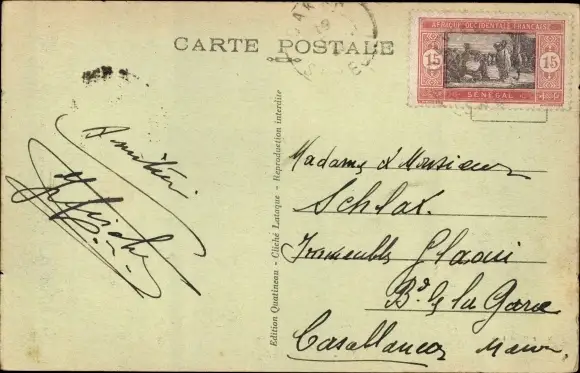 CARTE POSTALE
AFRIQUE OCCIDENTALE FRANÇAISE
15 15
SÉNÉGAL
Amitiés
Edition Quatineau - Cliché Lataque - Reproduction interdite
Madame & Monsieur
Schlax.
Immeuble Glaoui
Bd de la Gare
Casablanca Maroc